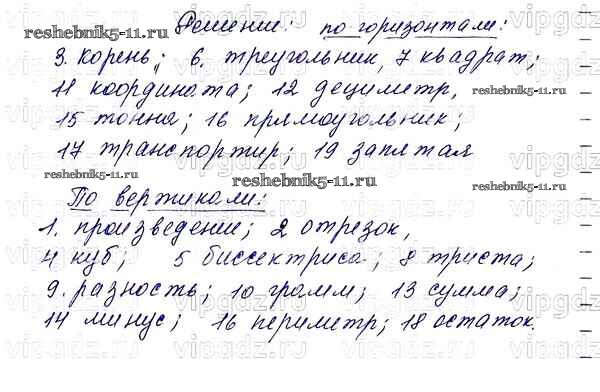 Решение: по горизонтали:
reshebnik5-11.ru
3. корень; 6. треугольник, 7 квадрат;
11 координата; 12 дециметр,
reshebnik5-11.ru
15 тонна; 16 прямоугольник;
17 транспортир; 19 запятая
reshebnik5-11.ru
По вертикали:
1. произведение; 2 отрезок,
reshebnik5-11.ru
4 куб; 5 биссектриса; 8 триста;
9. разность; 10 грамм; 13 сумма;
14 минус; 16 периметр; 18 остаток.
reshebnik5-11.ru
vipgdz.ru